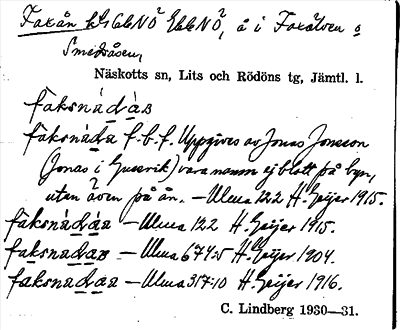 Faxån kt 16bNÖ 26bNÖ, å i Faxälven o
Smedsåsen,
Näskotts sn, Lits och Rödöns tg, Jämtl. l.
faksnàdàs
faksnàda f.b.f. Uppgives av Jonas Jonsson
(Jonas i Gussvik) vara namn ej blott på byn,
utan även på ån. — Ulma 122 H. Geijer 1915.
faksnàdàs — Ulma 122 H. Geijer 1915.
faksnadas — Ulma 674:5 H. Geijer 1904.
faksnadàs — Ulma 317:10 H. Geijer 1916.
C. Lindberg 1930—31.